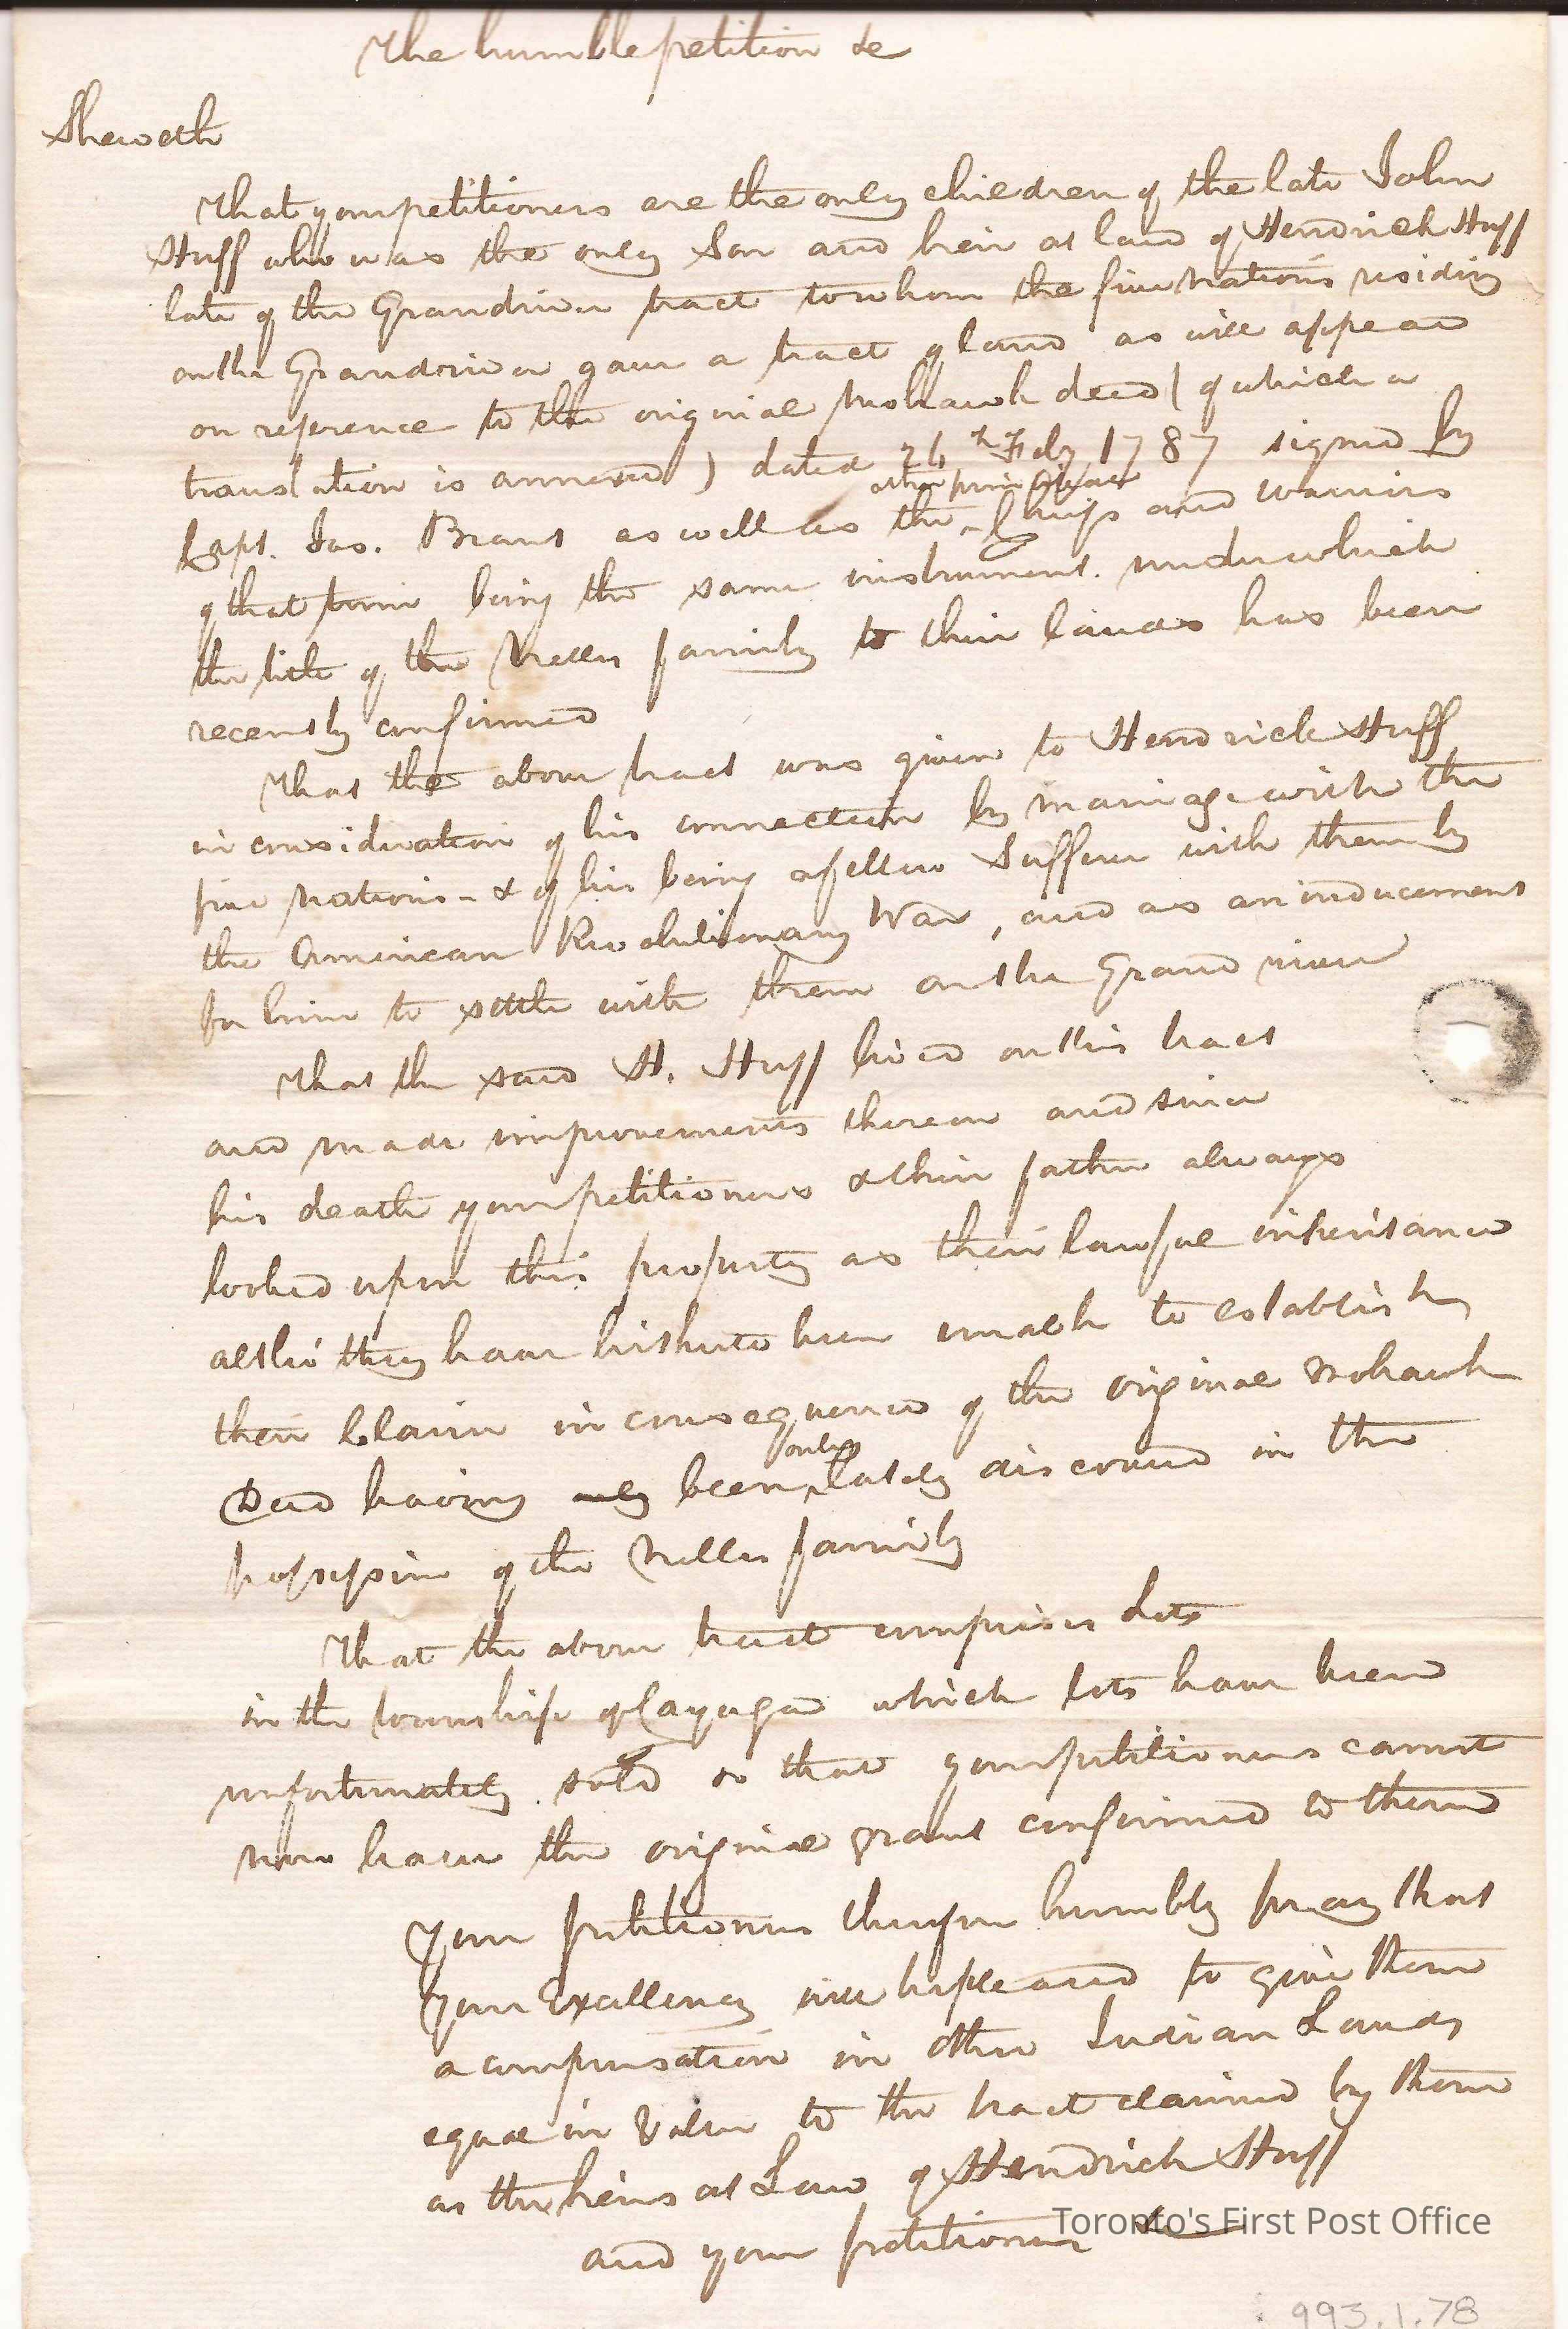 The humble petition &c
Sheweth
That your petitioners are the only children of the late John
Huff who was the only Son and heir at law of Hendrick Huff
late of the Grandriver tract to whom the five Nations residing
on the Grandriver gave a tract of land as will appear
on reference to the original Mohawk deed (of which a
translation is annexed) dated 26th Feby 1787 signed by
other principal
Capt. Jos. Brant as well as the ^ Chiefs and warriors
of that time being the same instrument under which
the title of the Nelles family to their lands has been
recently confirmed
That the above tract was given to Hendrick Huff
in consideration of his connection by marriage with the
five Nations - & of his being a fellow Sufferer with them by
the American Revolutionary War, and as an inducement
for him to settle with them on the Grand river
That the said H. Huff lived on this tract
and made improvements thereon and since
his death your petitioners & their father always
looked upon this property as their lawful inheritance
altho' they have hitherto been unable to establish
their Claim in consequence of the original Mohawk
only
Deed having only been ^ lately discovered in the
possession of the Nelles family
That the above tract comprises Lots
in the township of Cayuga which lots have been
unfortunately sold so that your petitioners cannot
now have the original grant confirmed to them
Your petitioners therefore humbly pray that
Your Excellency will be pleased to give them
a compensation in other Indian Lands
equal in Value to the tract claimed by them
as the heirs at Law of Hendrick Huff
and your petitioners &c
Toronto's First Post Office
993.1.78